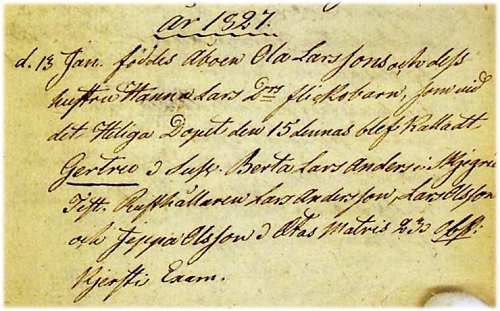 År 1827.
d. 13 Jan. föddes Åboen Ola Larssons och dess
hustru Hanna Lars Drs flickobarn, som vid
det Heliga Dopet den 15 dennas blef kalladt
Gertru Susc. Berta Lars Anders i
Test. Rusthållaren Lars Andersson, Lars Olsson
och Jeppa Olsson Ætas Matris 23
Kjersti Exam.